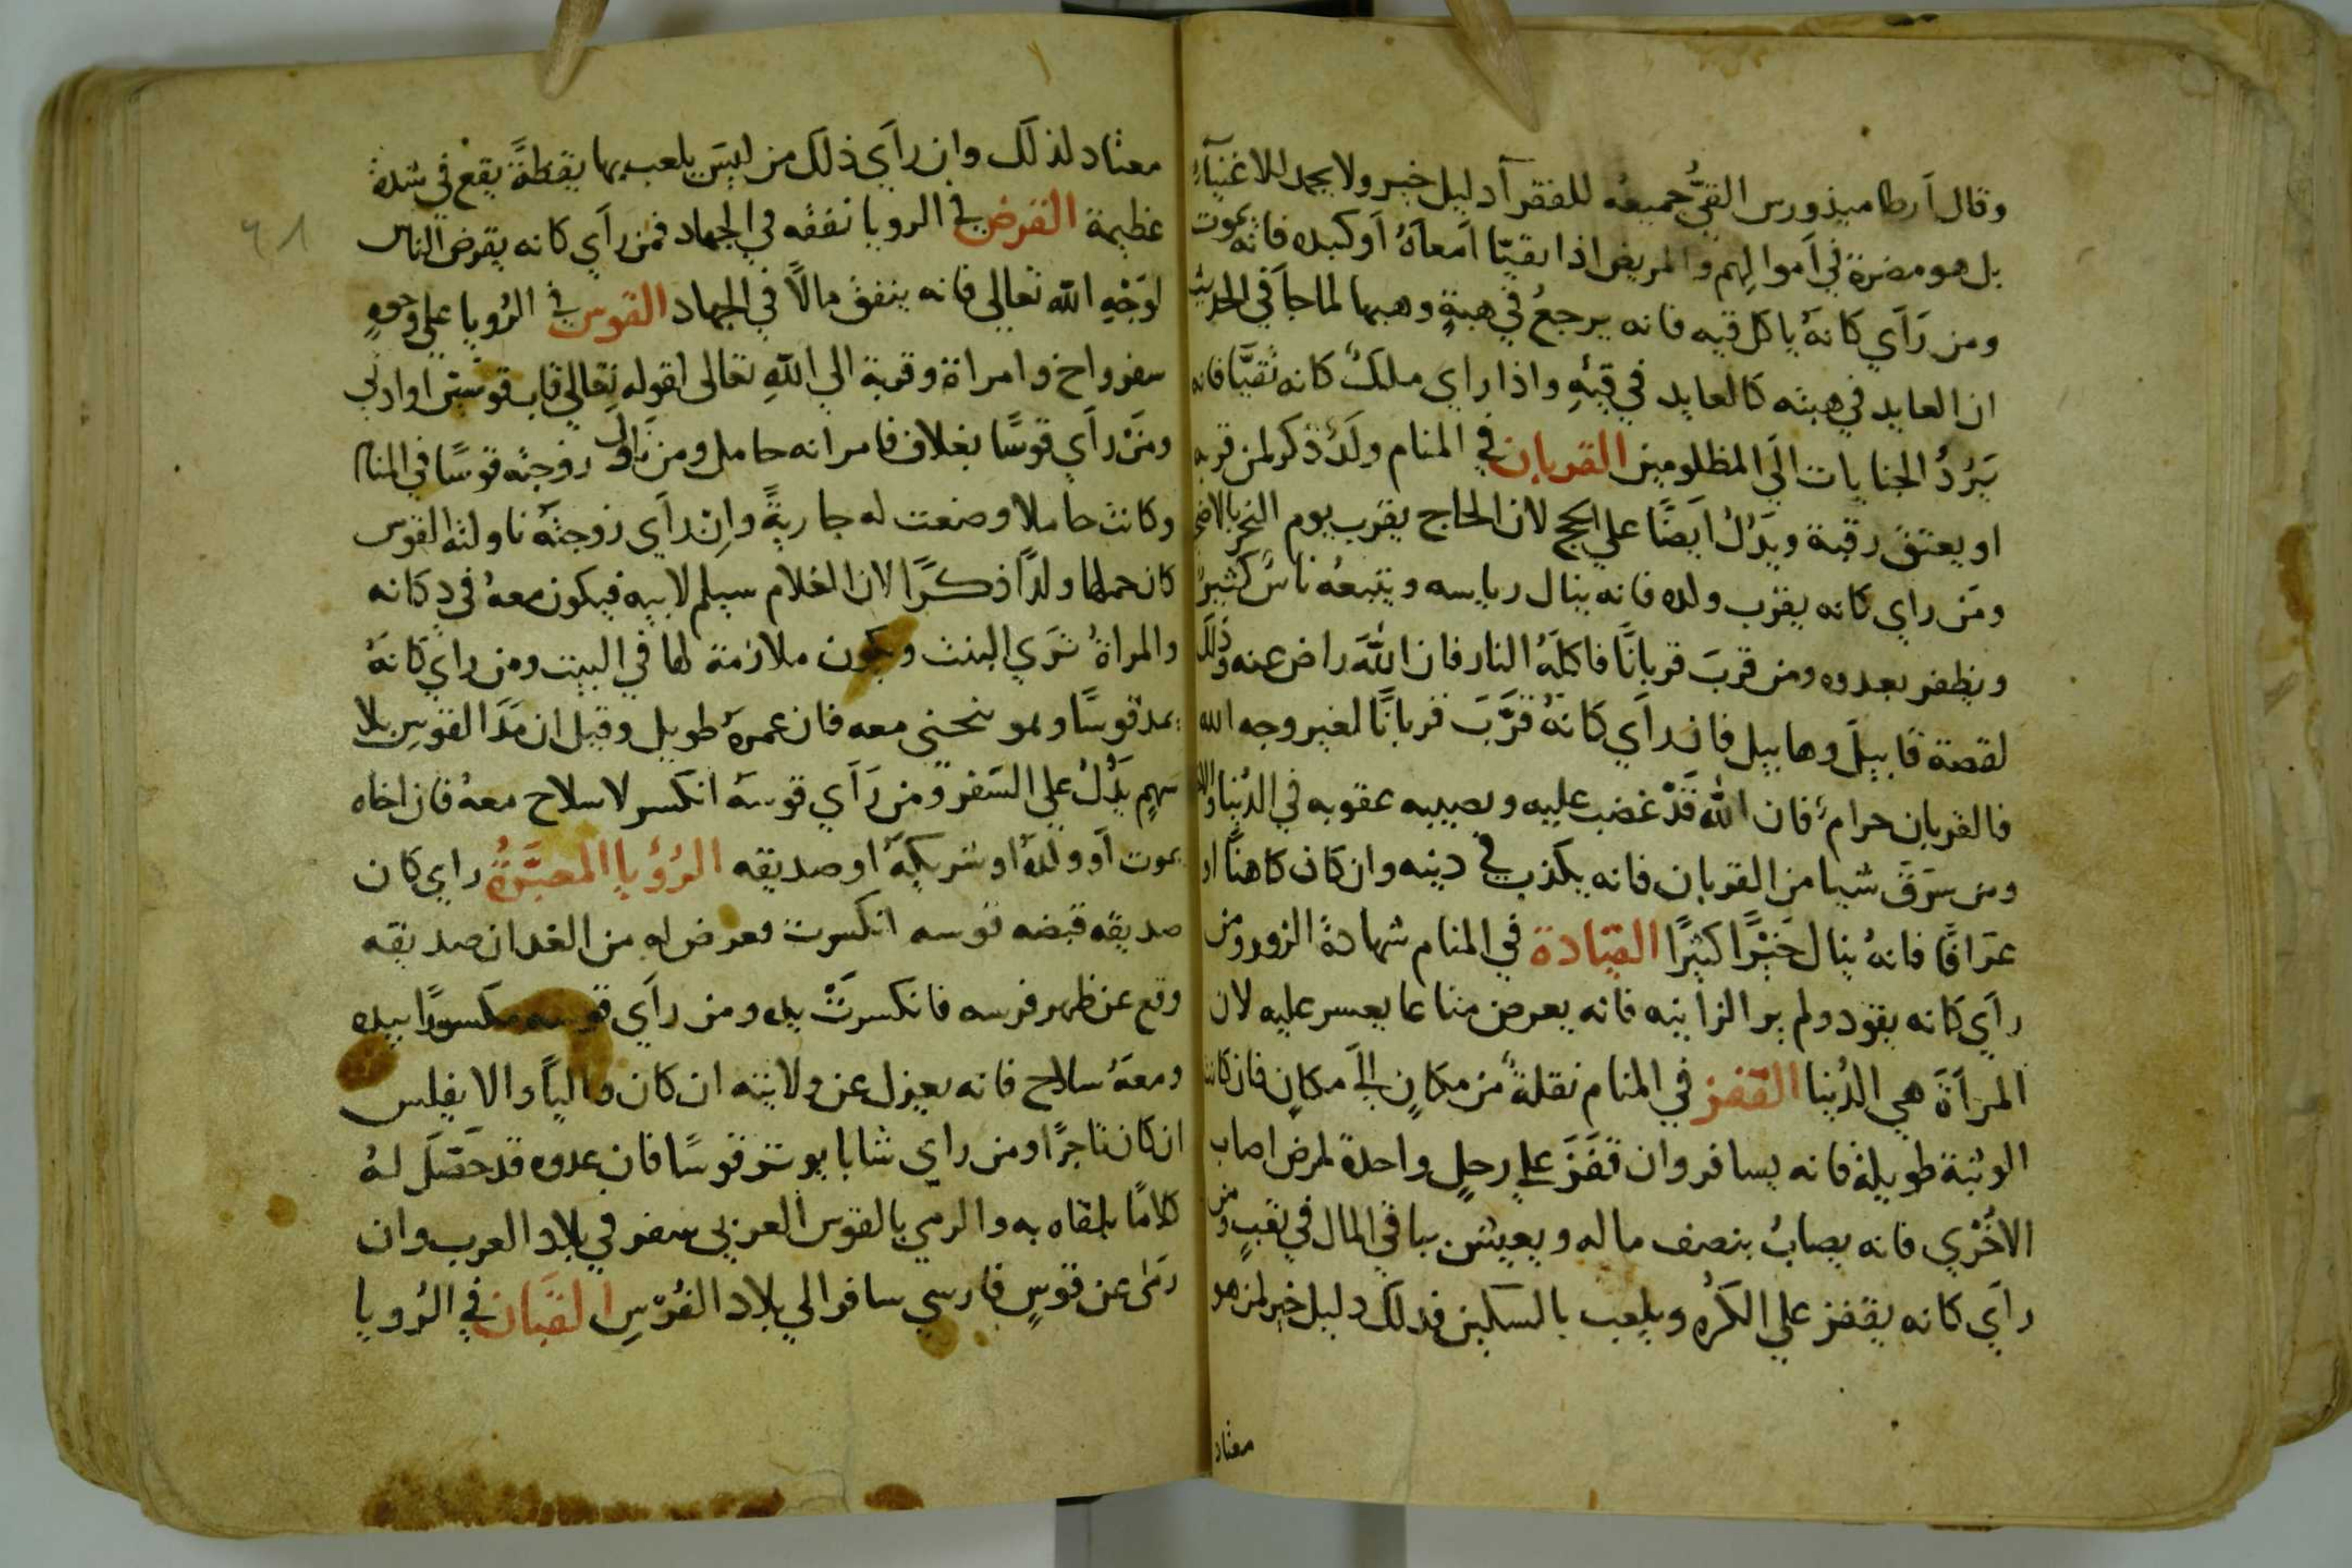 وقال ارطاميذورس القيُّ جميعه للفقرآ دليل خير ولا يحمد للاغنيآء
بل هو مضرة في اَموالهم والمريض اذا تقيّا اَمعآهُ اَوكبده فانه يموت
ومن رَاَي كانهُ ياكل قيه فانه يرجعُ في هبةٍ وهبها لما جاَ في الحديث
ان العايد في هبته كالعايد في قيهِ واذا راي ملكٌ كانه تقيَّا فانه
يَرُدُّ الجنايات اليَ المظلومين القربان في المنام ولدٌ ذكر لمن قربه
او يعتق رقبة ويدَلُ ايضًا علي الحج لان الحاج يقرب يوم النحر بالاضحي
ومَن راي كانه يقرب ولده فانه ينال رياسه ويتبعهُ ناسٌ كثيرٌ
ويظفر بعدوه ومن قربَ قربانًا فاكلَهُ النار فان اللهَ راض عنه وذلك
لقصة قابيلَ وهابيل فان راَي كانهُ قرَّبَ قربانًا لغير وجه الله
فالقربان حرامٌ فان الله قَدْ غضب عليه ويصيبه عقوبه في الدُنيا والاخ
ومن سرَقَ شيا من القربان فانه يكذب في دينه وان كان كاهنًا او
عرّافًا فانهُ ينال خَيْرًا كثيرًا القيادة في المنام شهادة الزور ومن
راَي كانه يقود ولم ير الزانيه فانه يعرض متاعا يعسر عليه لان
المراَةَ هي الدُنيا القفز في المنام نقلةٌ من مكانٍ الَي مكانٍ فان كانت
الوثبة طويلة فانه يسافر وان قفَزَ علي رجلٍ واحدة لمرض اصاب
الاخْرَي فانه يصابُ بنصف ماله ويعيش بباقي المال في تعبٍ ومن
راَي كانه يقفز علي الكُره ويلعب بالسكين فذلك دليل خير لمن هو
معتاد
معتاد لذلك وان راَي ذلك من ليسَ يلعب بها يقظةً يقع في شدة
عظيمة القرض في الرويا نفقه في الجهاد فمن راَي كانه يقرض الناس
لوَجْهِ الله تعالي فانه ينفق مالًا في الجهاد القوس في الرُويا علي وجوهٍ
سفر واخ وامراة وقربة الي اللهِ تعالي لقوله تعالي قاب قوسين او ادني
ومَنْ راَي قوسًا بغلاف فامراته حامل ومن ناول زوجته قوسًا في المنام
وكانت حاملا وضعت له جاريةً وانْ راَي زوجتَهُ ناولته القوس
كان حملها ولدًا ذكرًا لان الغلام سيلم لابيه فيكون معهُ في دكانه
والمراةُ تَرَي البنت وتكون ملازمة لها في البيت ومن راَي كانهُ
يمد قوسًا وهو ينحني معه فان عمرهُ طويل وقيل ان مَدَ القوس بلا
سَهمٍ يدُلْ علي السَفر ومن رَاَي قوسهُ انكسر لا سلاح معهُ فان اخاه
يموت اَو ولدهُ او شريكهُ او صديقه الرُؤيا المعبَّرةُ راي كان
صديقه قبضه قوسه انكسرت فعرض له من الغد ان صديقه
وقع عن ظهر فرسه فانكسرتْ يده ومن راَي قوسه مكسورًا بيده
ومعهُ سلاح فانه يعزل عن ولايته ان كان واليًا والا يفلس
ان كان تاجرًا ومن راي شابا يوتر قوسًا فان عدوه قد حَصَّلَ لهُ
كلامًا يلقاه به والرمي بالقوس العربي سفر في بلاد العرب وان
رَمَي عن قوسٍ فارسي سافر الي بلاد الفُرْسِ القبَّان في الرُويا
٦١